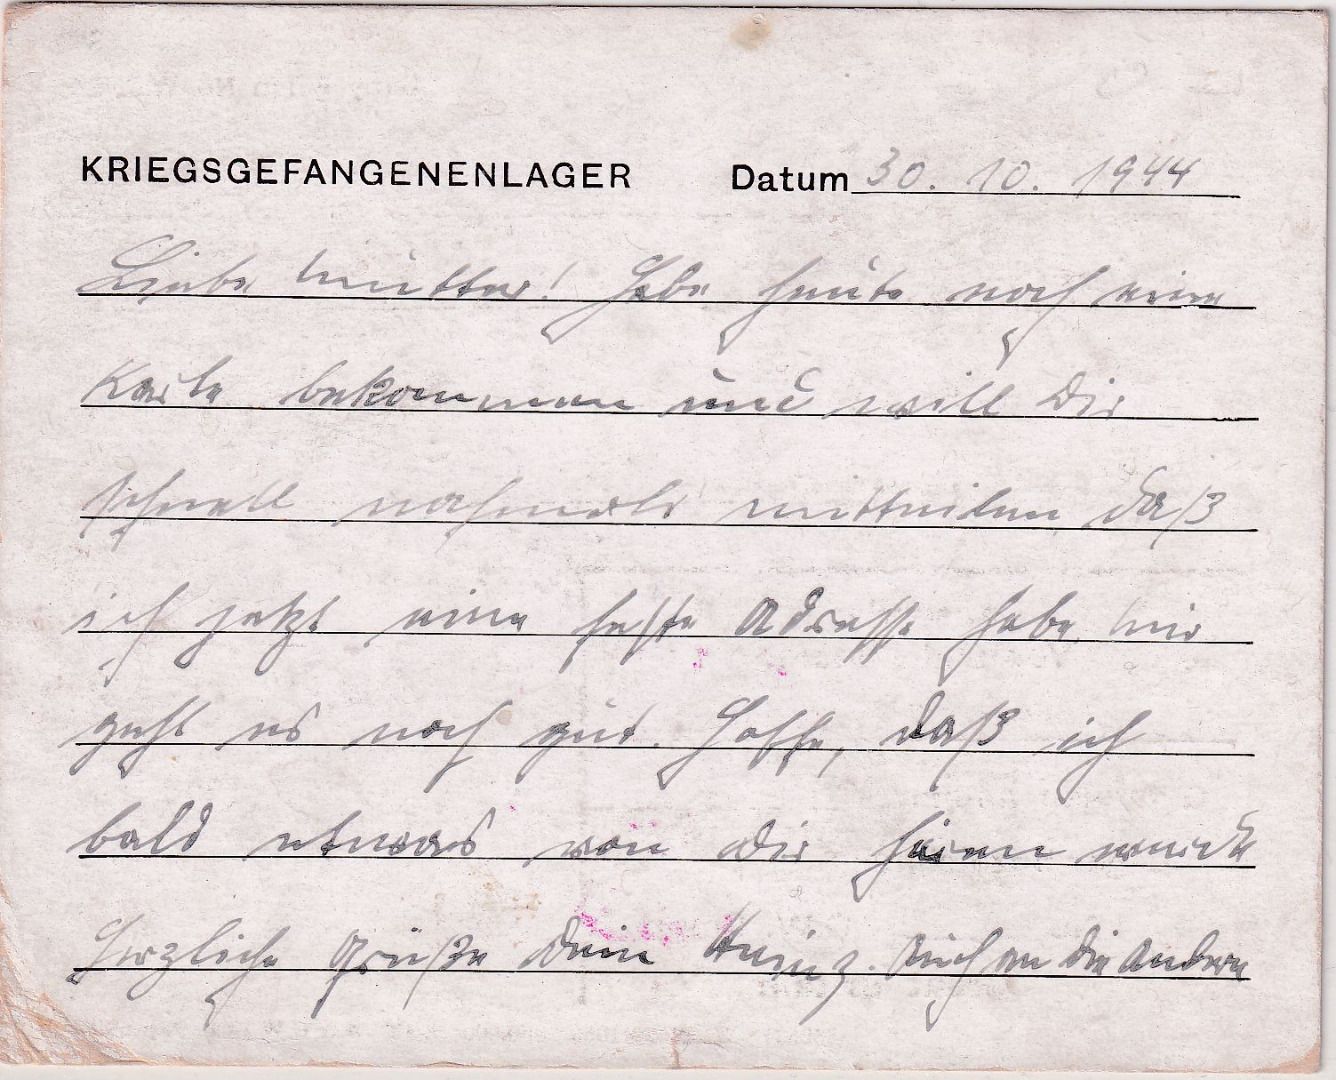 KRIEGSGEFANGENENLAGER Datum 30. 10. 1944
Liebe Mutter! Habe heute noch eine
Karte bekommen und will Dir
schnell nochmals mitteilen daß
ich jetzt eine feste Adresse habe mir
geht es noch gut. Hoffe, daß ich
bald etwas von Dir hören werde
Herzliche Grüße Dein Heinz. Auch an die Andern